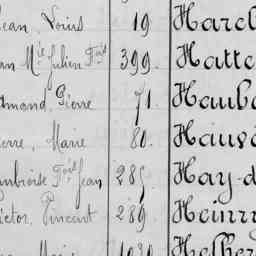 ean, Louis 19 Harcl
an Mle Julien Fçois 399. Hatte
dmond, Pierre 71. Hauba
erre, Marie 80. Hauvo
mbroise Fçois Jean 285 Hay-d
ictor, Vincent 289. Heinrr